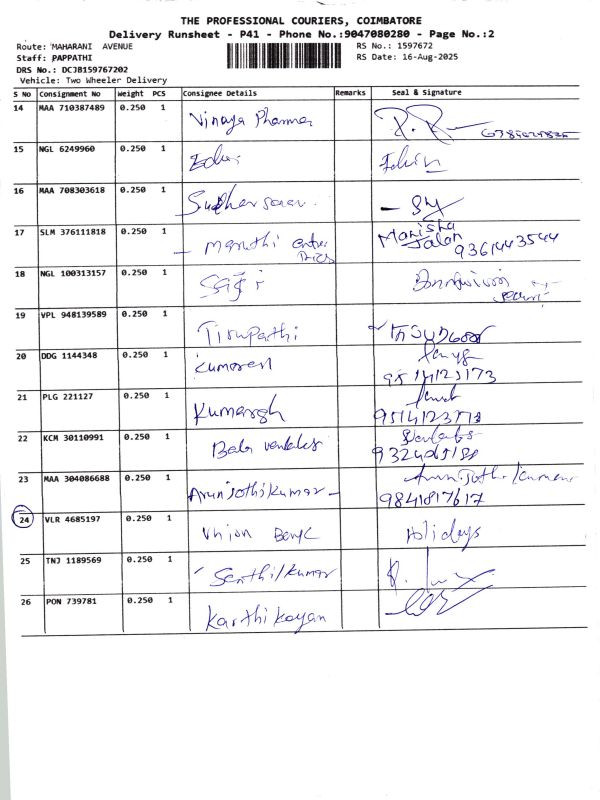 THE PROFESSIONAL COURIERS, COIMBATORE
Delivery Runsheet - P41 - Phone No.:9047080280 - Page No.:2
Route: MAHARANI AVENUE
RS No.: 1597672
Staff: PAPPATHI
RS Date: 16-Aug-2025
DRS No.: DCJB159767202
Vehicle: Two Wheeler Delivery
S No Consignment No Weight PCS Consignee Details Remarks Seal & Signature
14 MAA 710387489 0.250 1 Vinaya Pharma
15 NGL 6249960 0.250 1 Edwin Edwin
16 MAA 708303618 0.250 1 Sudharsan
17 SLM 376111818 0.250 1 Maruthi Enter Prizes Manisha Jalan 9361443544
18 NGL 100313157 0.250 1
19 VPL 948139589 0.250 1 Tirupathi
20 DDG 1144348 0.250 1 Kumaran 9514123173
21 PLG 221127 0.250 1 Kumaran
22 KCM 30110991 0.250 1 Bala venkates
23 MAA 304086688 0.250 1 Arunjothikumar Arunjothikumar 9841817617
24 VLR 4685197 0.250 1 Union Bank Holidays
25 TNJ 1189569 0.250 1 Senthilkumar
26 PON 739781 0.250 1 Karthikeyan